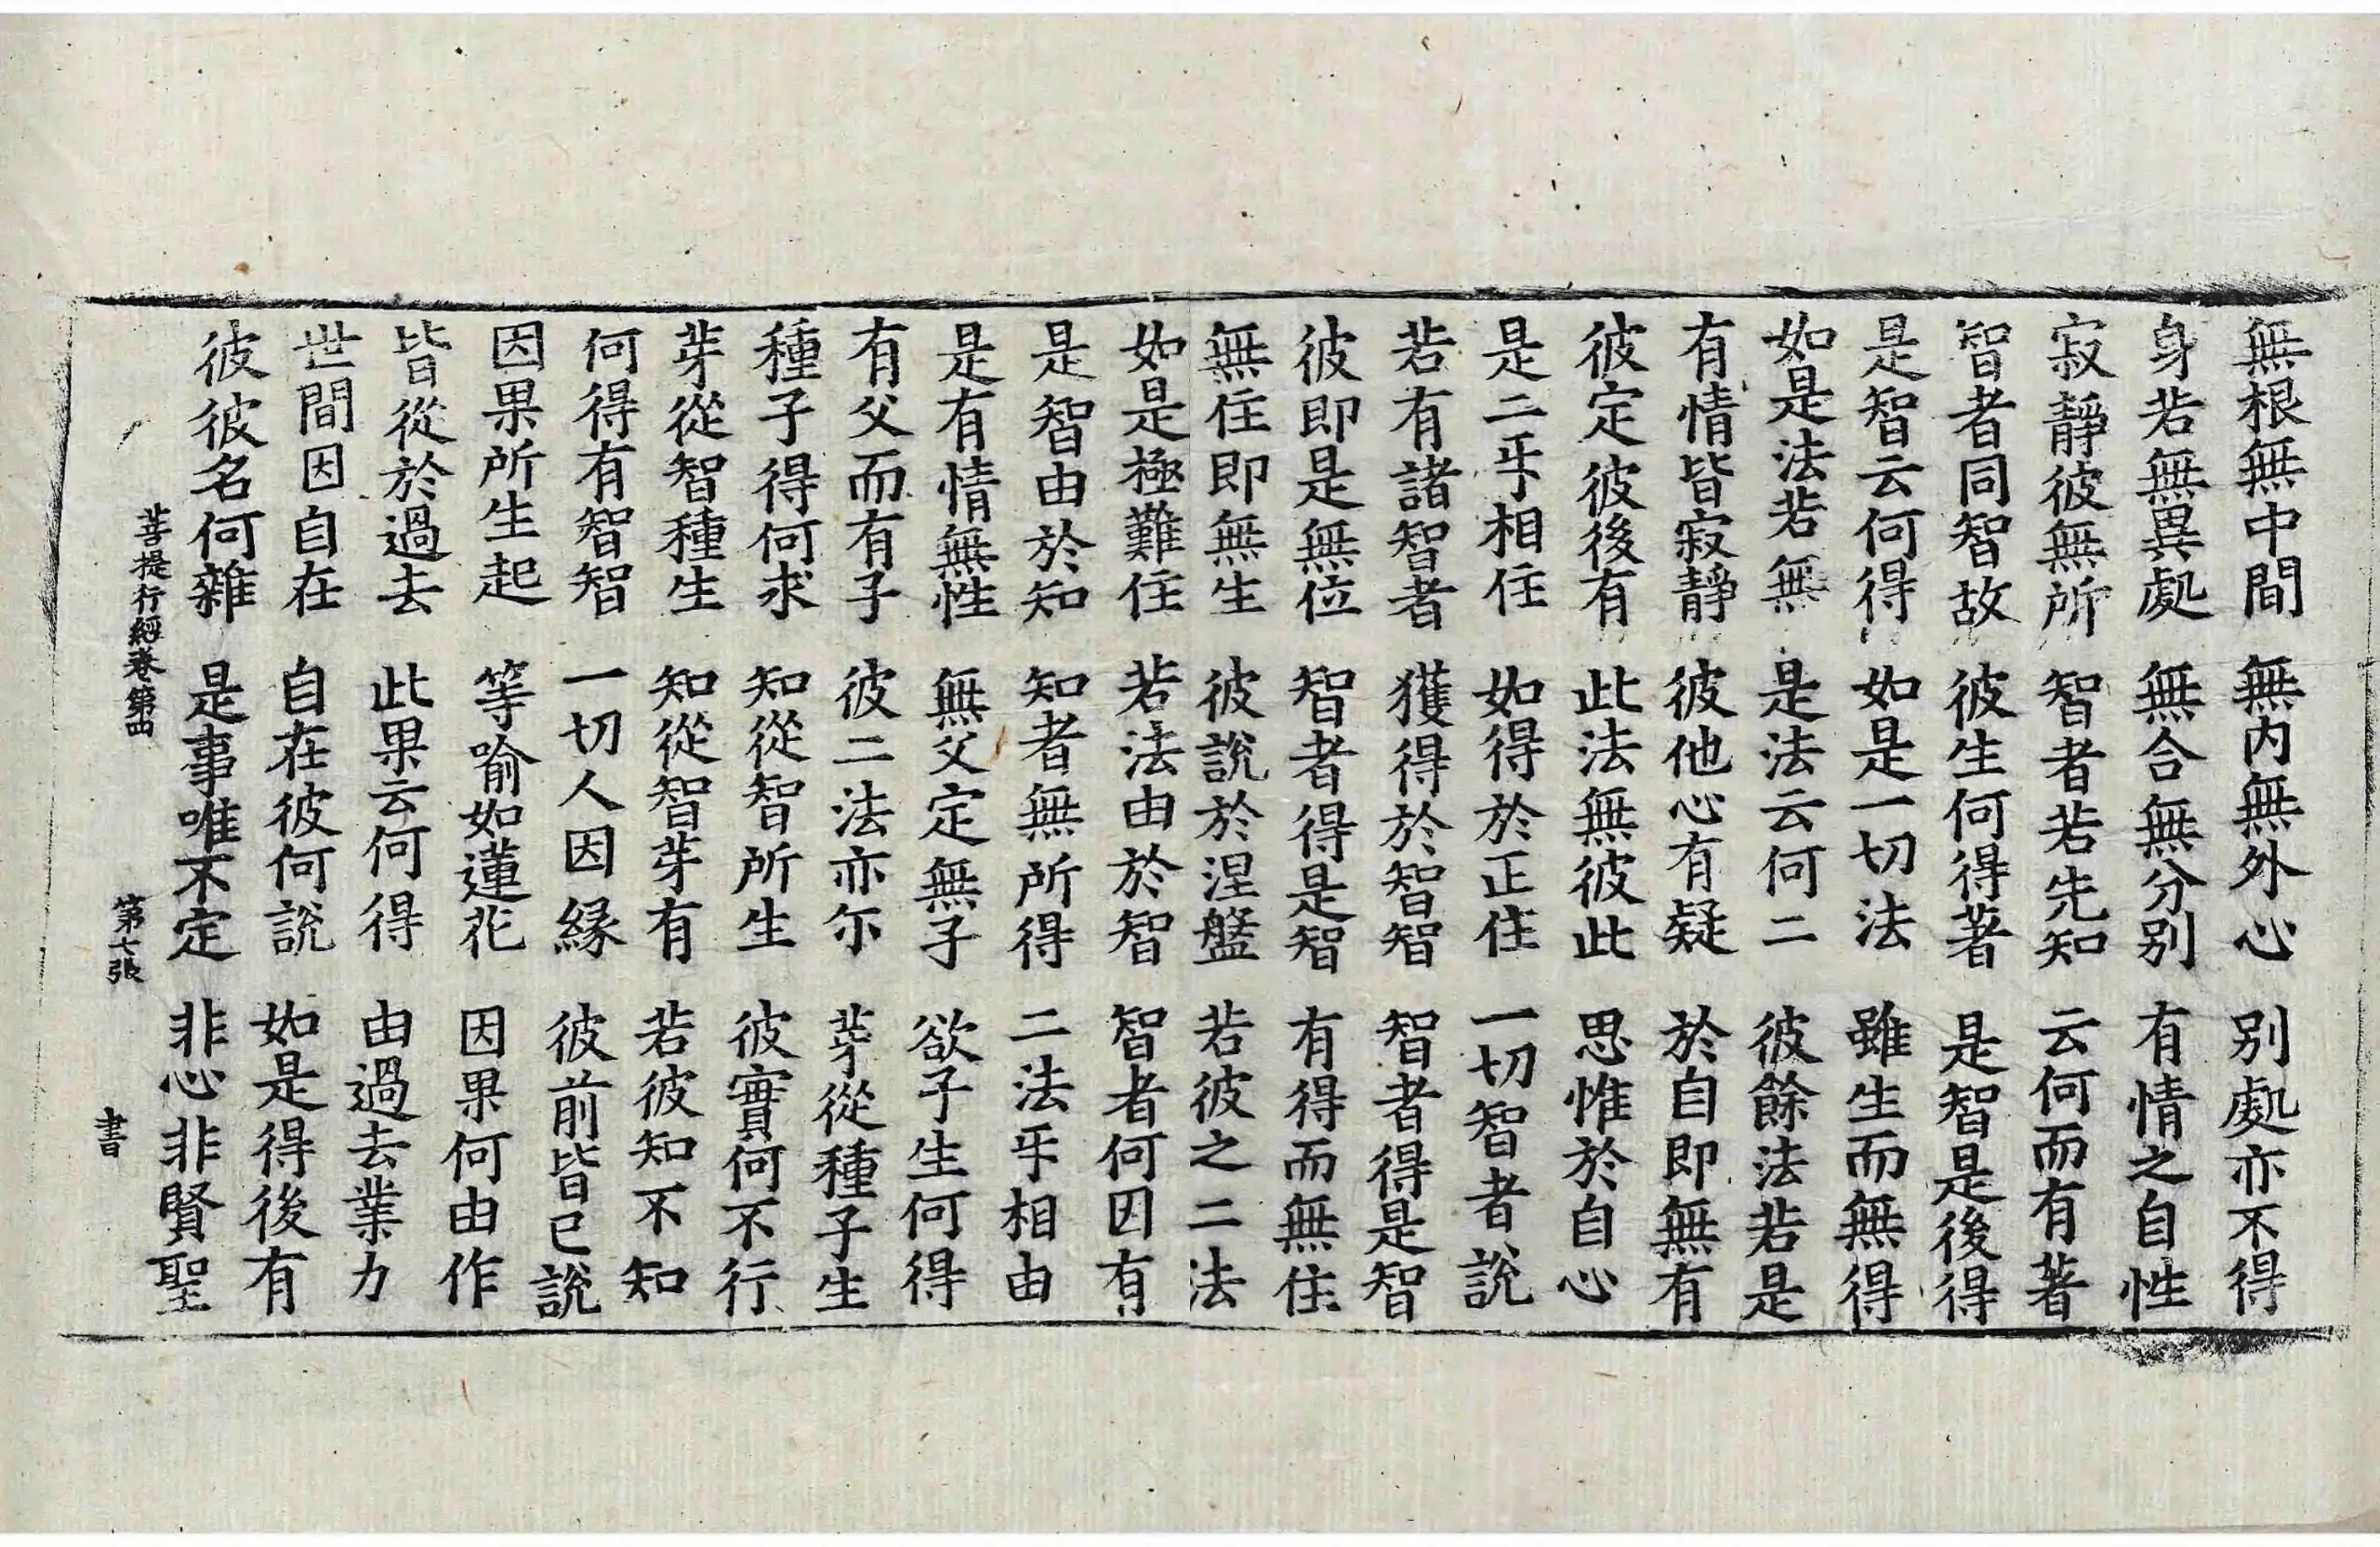 無根無中間 無內無外心 別處亦不得
身若無異處 無合無分別 有情之自性
寂靜彼無所 智者若先知 云何而有著
智者同智故 彼生何得著 是智是後得
是智云何得 如是一切法 雖生而無得
如是法若無 是法云何二 彼餘法若是
有情皆寂靜 彼他心有疑 於自即無有
彼定彼後有 此法無彼此 思惟於自心
是二乎相住 如得於正住 一切智者說
若有諸智者 獲得於智智 智者得是智
彼即是無位 智者得是智 有得而無住
無住即無生 彼說於涅盤 若彼之二法
如是極難住 若法由於智 智者何因有
是智由於知 知者無所得 二法乎相由
是有情無性 無父定無子 欲子生何得
有父而有子 彼二法亦尒 芽從種子生
種子得何求 知從智所生 彼實何不行
芽從智種生 知從智芽有 若彼知不知
何得有智智 一切人因緣 彼前皆已說
因果所生起 等喻如蓮花 因果何由作
皆從於過去 此果云何得 由過去業力
世間因自在 自在彼何說 如是得後有
彼彼名何雜 是事唯不定 非心非賢聖
菩提行經卷第四 第七張 書